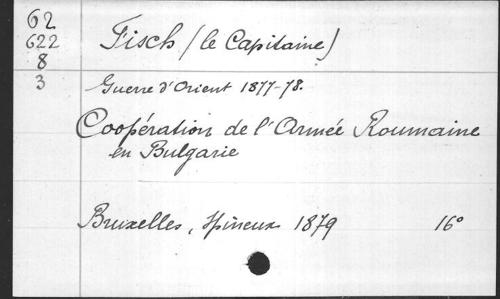 62
622
8
3
Fisch (le Capitaine)
Guerre d'Orient 1877-78.
Coopération de l'Armée Roumaine
en Bulgarie
Bruxelles, Spineux 1879 16°